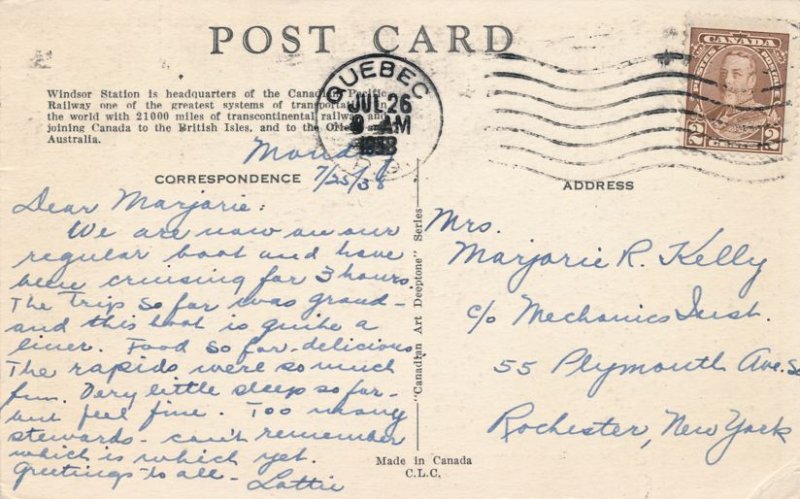 POST CARD
Windsor Station is headquarters of the Canadian Pacific
Railway one of the greatest systems of transportation in
the world with 21000 miles of transcontinental railway and
joining Canada to the British Isles, and to the Orient and
Australia.
QUEBEC
JUL 26
9 AM
1938
CANADA
POSTES POSTAGE
2 CENTS 2
Monday
7/25/38
CORRESPONDENCE
ADDRESS
Dear Marjorie:
We are now on our
regular boat and have
been cruising for 3 hours.
The trip so far was grand-
and this boat is quite a
liner. Food so far-delicious
The rapids were so much
fun. Very little sleep so far-
but feel fine. Too many
stewards- can't remember
which is which yet.
Greetings-to all- Lottie
"Canadian Art Deeptone" Series
Mrs.
Marjorie R. Kelly
c/o Mechanics Inst.
55 Plymouth Ave. So
Rochester, New York
Made in Canada
C.L.C.